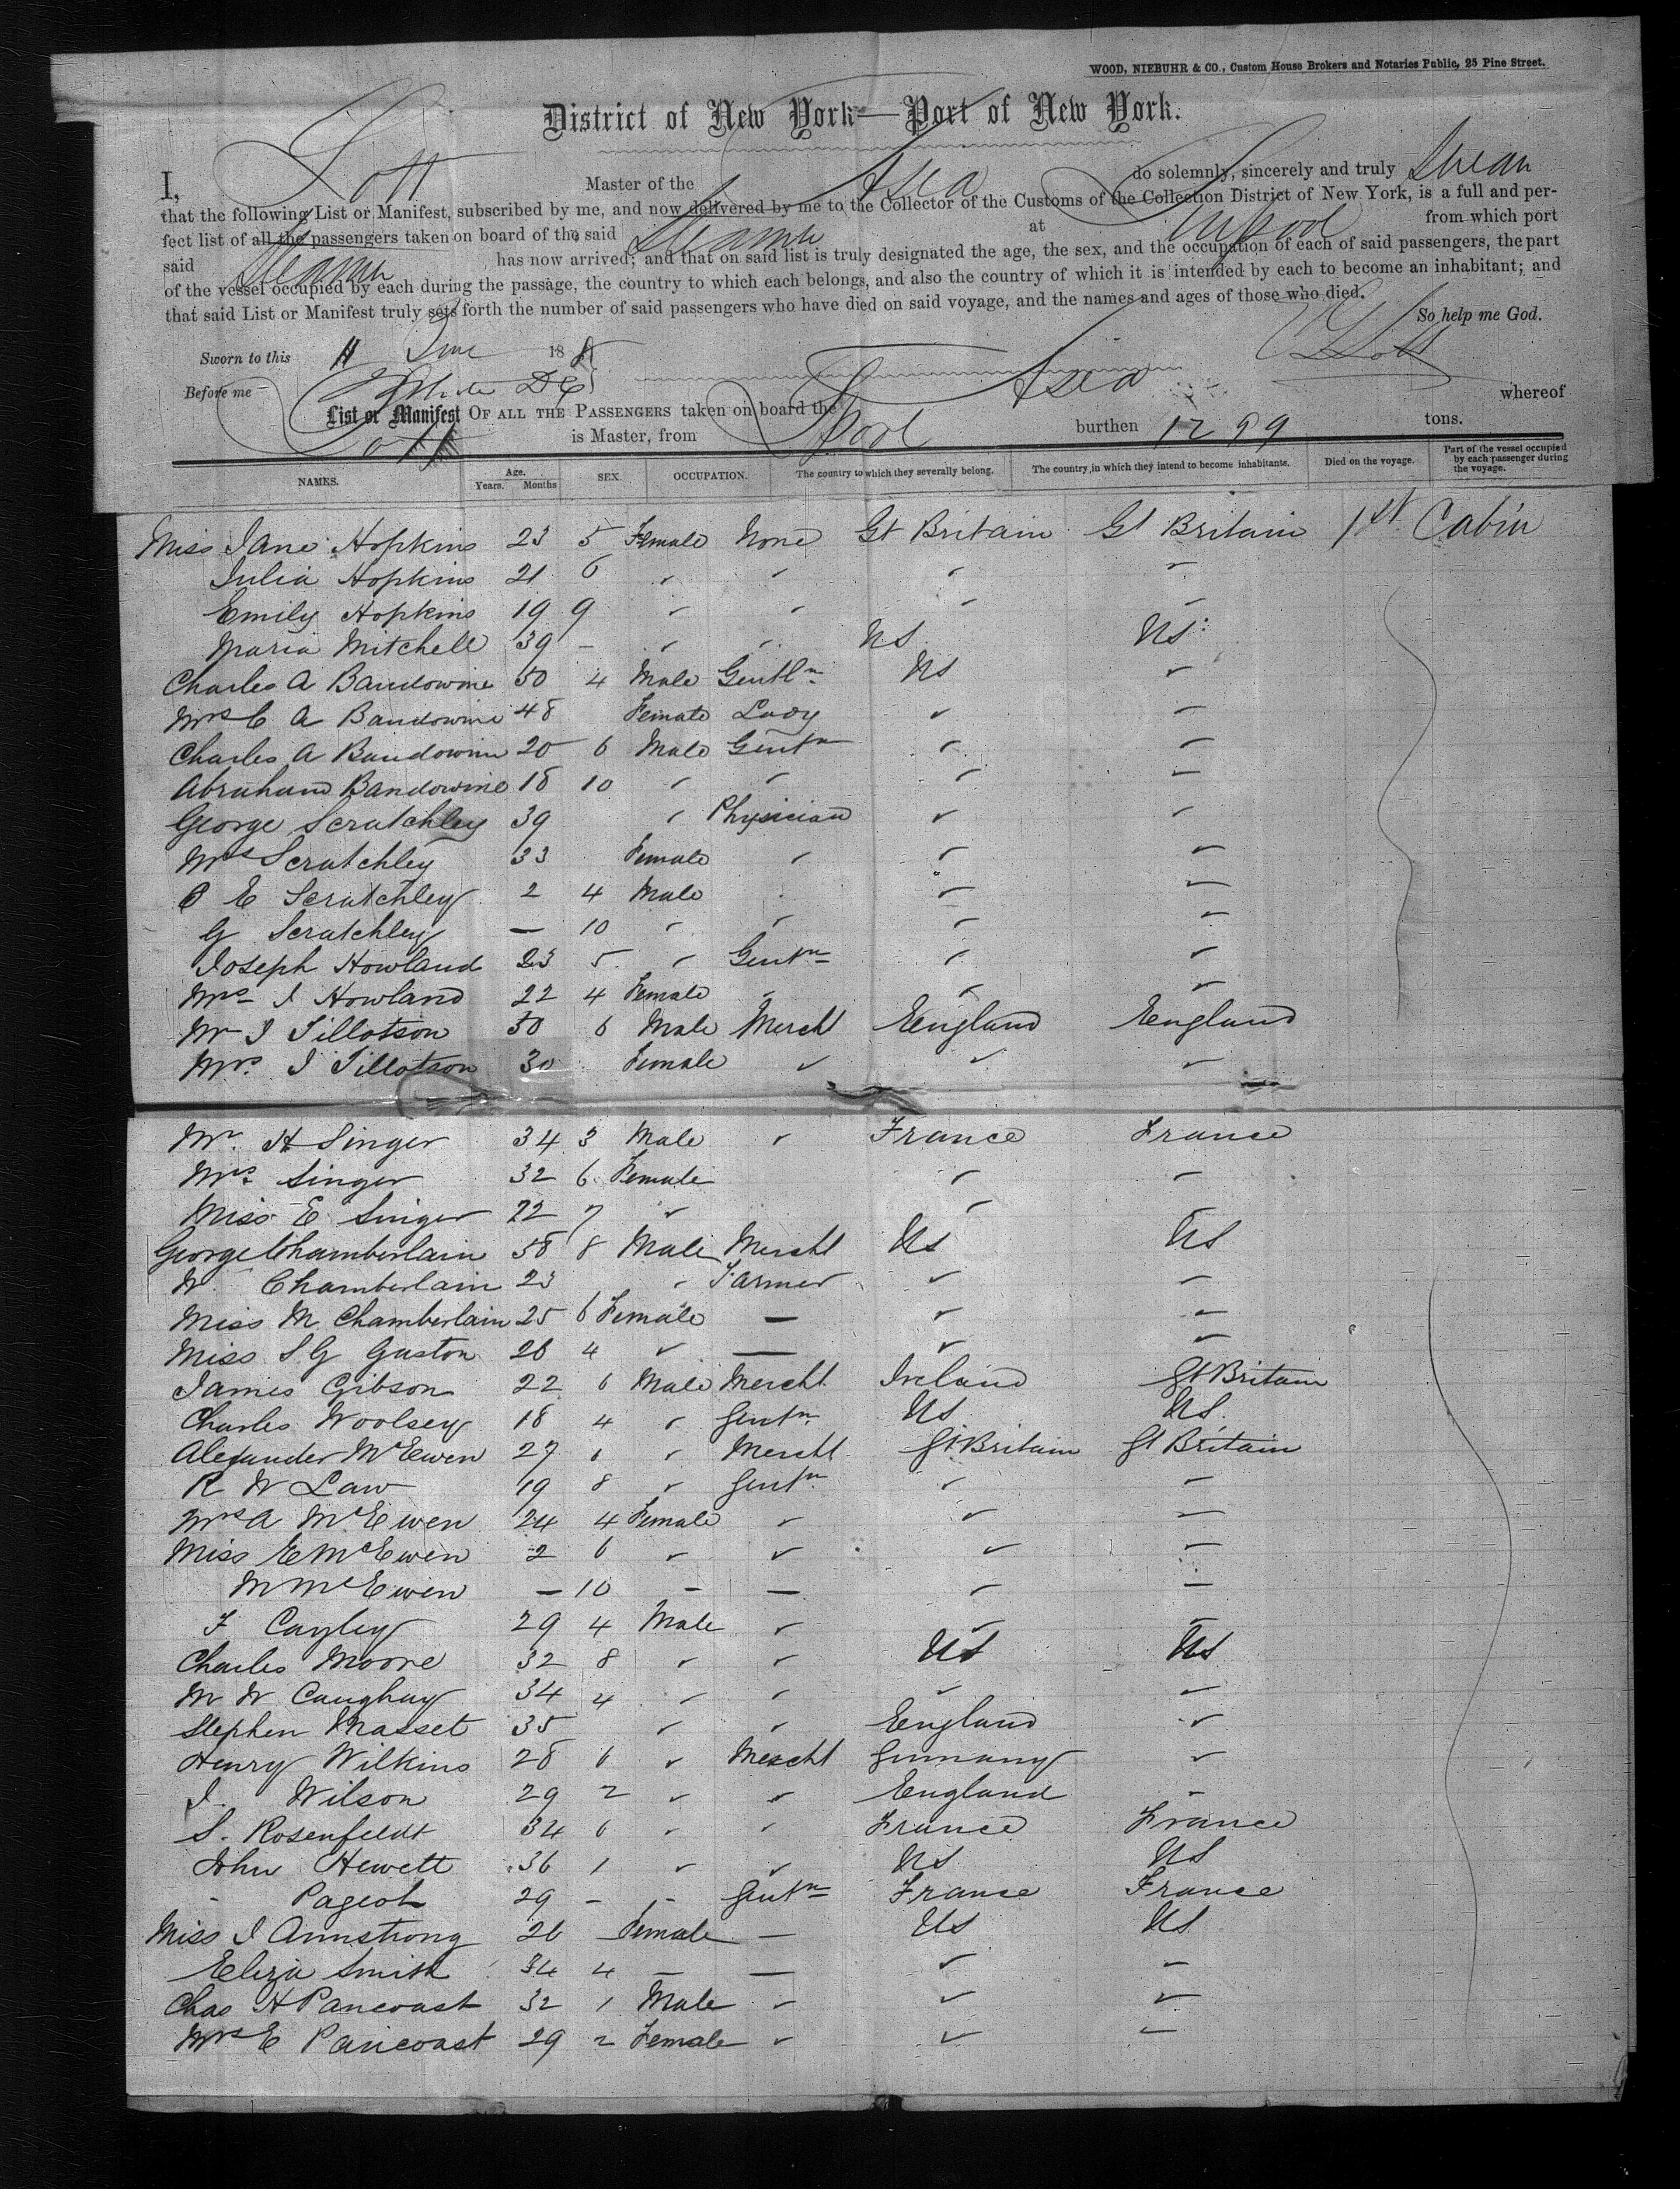 WOOD, NIEBUHR & CO., Custom House Brokers and Notaries Public, 25 Pine Street.
District of New York—Port of New York.
I, Lott Master of the Asia do solemnly, sincerely and truly Swear
that the following List or Manifest, subscribed by me, and now delivered by me to the Collector of the Customs of the Collection District of New York, is a full and per-
fect list of all the passengers taken on board of the said Steamer at Liverpool from which port
said Steamer has now arrived; and that on said list is truly designated the age, the sex, and the occupation of each of said passengers, the part
of the vessel occupied by each during the passage, the country to which each belongs, and also the country of which it is intended by each to become an inhabitant; and
that said List or Manifest truly sets forth the number of said passengers who have died on said voyage, and the names and ages of those who died.
So help me God.
Sworn to this 11 June 18
Lott
Before me
List or Manifest OF ALL THE PASSENGERS taken on board the Asia whereof
Lott is Master, from Lpool burthen 1299 tons.
NAMES. Age. Years. Months SEX. OCCUPATION. The country to which they severally belong. The country in which they intend to become inhabitants. Died on the voyage. Part of the vessel occupied by each passenger during the voyage.
Miss Jane Hopkins 23 5 Female None Gt Britain Gt Britain 1st Cabin
Julia Hopkins 21 6 " " " "
Emily Hopkins 19 9 " " " "
Maria Mitchell 39 - " " US US
Charles A Baudowine 50 4 Male Gentln US "
Mrs C A Baudowine 48 Female Lady " "
Charles A Baudowine 20 6 Male Gentn " "
Abraham Baudowine 18 10 " " " "
George Scratchley 39 " Physician " "
Mrs Scratchley 33 Female " " "
C E Scratchley 2 4 Male " "
G Scratchley — 10 " " " "
Joseph Howland 23 5 " Gentn " "
Mrs J Howland 22 4 Female " " "
Mr J Tillotson 50 6 Male Mercht England England
Mrs. J Tillotson 30 Female " " "
Mr. H Singer 34 3 Male " France France
Mrs. Singer 32 6 Female " "
Miss E Singer 22 7 " " "
George Chamberlain 58 8 Male Mercht US US
W. Chamberlain 23 " Farmer " "
Miss M Chamberlain 25 6 Female — " "
Miss S G Gaston 26 4 " — " "
James Gibson 22 6 Male Mercht Ireland Gt Britain
Charles Woolsey 18 4 " Gentn US US
Alexander McEwen 27 6 " Mercht Gt Britain Gt Britain
R W Law 19 8 " Gentn " "
Mrs A McEwen 24 4 Female " " "
Miss E McEwen 2 6 " " " "
M McEwen — 10 - — " "
F Cayley 29 4 Male " " "
Charles Moore 32 8 " " US US
M W Caughay 34 4 " " " "
Stephen Masset 35 " " England "
Henry Wilkins 28 6 " Mercht Germany "
J. Wilson 29 2 " " England "
S. Rosenfeldt 34 6 " " France France
John Hewett 36 1 " " US US
- Pageot 29 - - Gentn France France
Miss J Armstrong 26 Female — US US
Eliza Smith 34 4 — — " "
Chas H Pancoast 32 1 Male " " "
Mrs E Pancoast 29 2 Female " " "